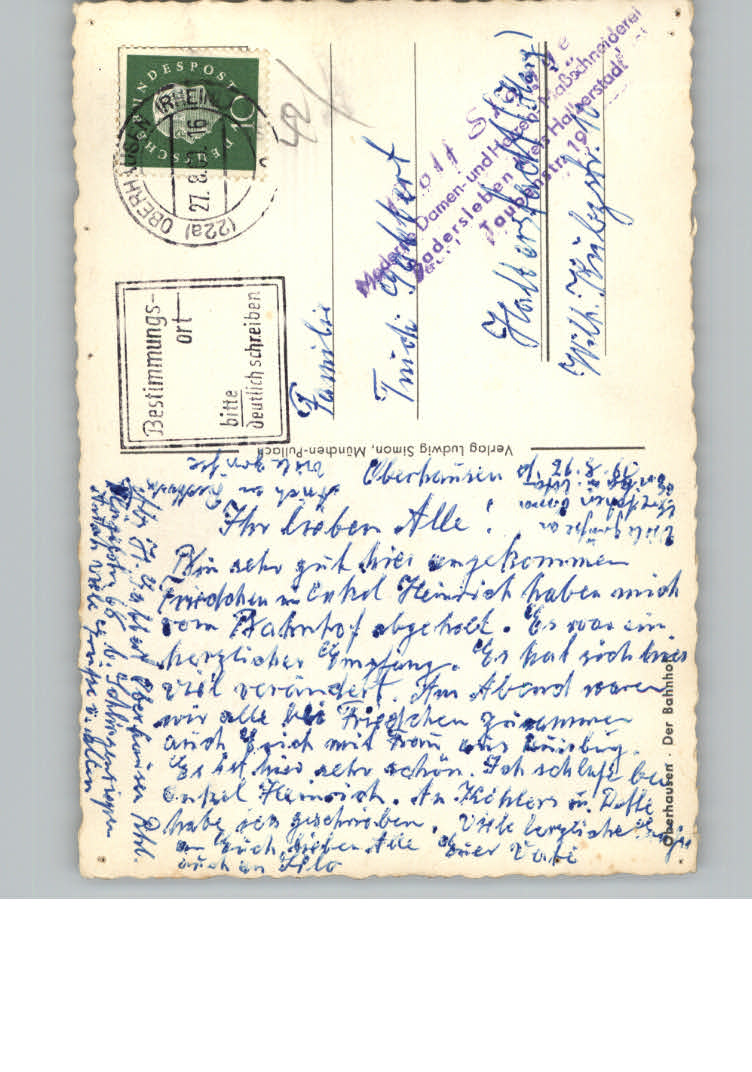 DEUTSCHE BUNDESPOST
10
(22a) OBERHAUSEN (RHEINL)
27.8.61.-16
Bestimmungs-
ort
bitte
deutlich schreiben
Moderne Damen- und Herren-Maßschneiderei
Badersleben über Halberstadt
Taubenstr. 19
Familie
Trudi
Halberstadt (Harz)
Wilh. Külzstr. 10
Verlag Ludwig Simon, München-Pullach
Oberhausen · Der Bahnhof
Oberhausen
Ihr lieben Alle!
Bin sehr gut hier angekommen
Friedchen u Onkel Heinrich haben mich
vom Bahnhof abgeholt. Es war ein
herzlicher Empfang. Es hat sich hier
viel verändert. Am Abend waren
wir alle bei Friedchen zusammen
auch Erich mit Frau aus
Es ist hier sehr schön. Ich schlafe bei
Onkel Heinrich. An Köhlers u.
habe ich geschrieben. Viele herzliche Grüße
an Euch lieben Alle Euer Vati
auch an Lilo
Viele Grüße an
Oberhausen Rhl.